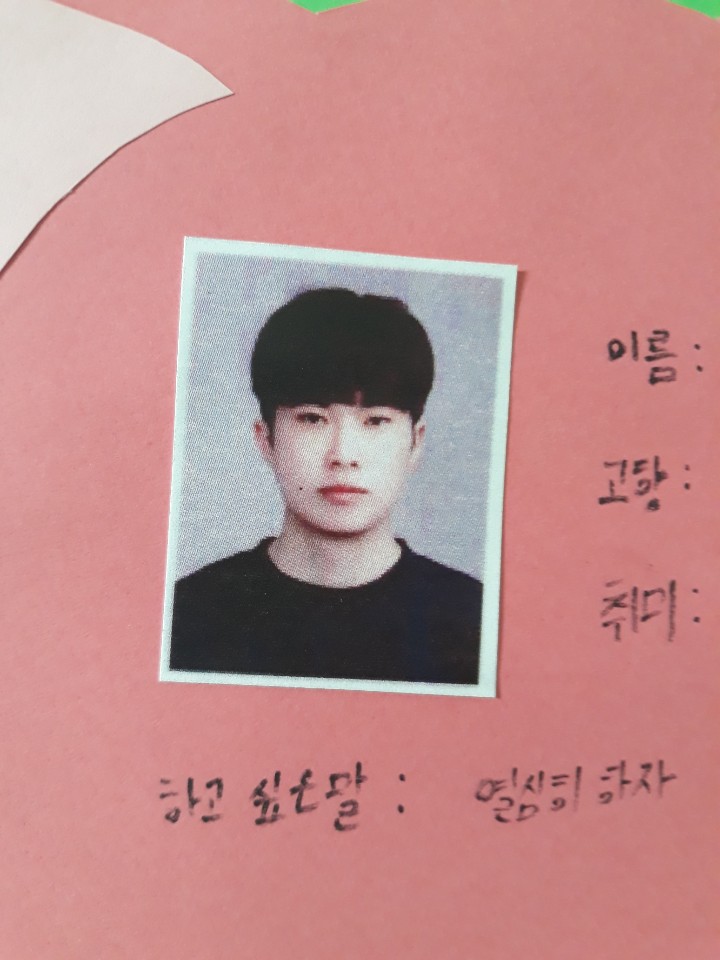 이름 :
고향 :
취미 :
하고 싶은말 : 열심히 하자